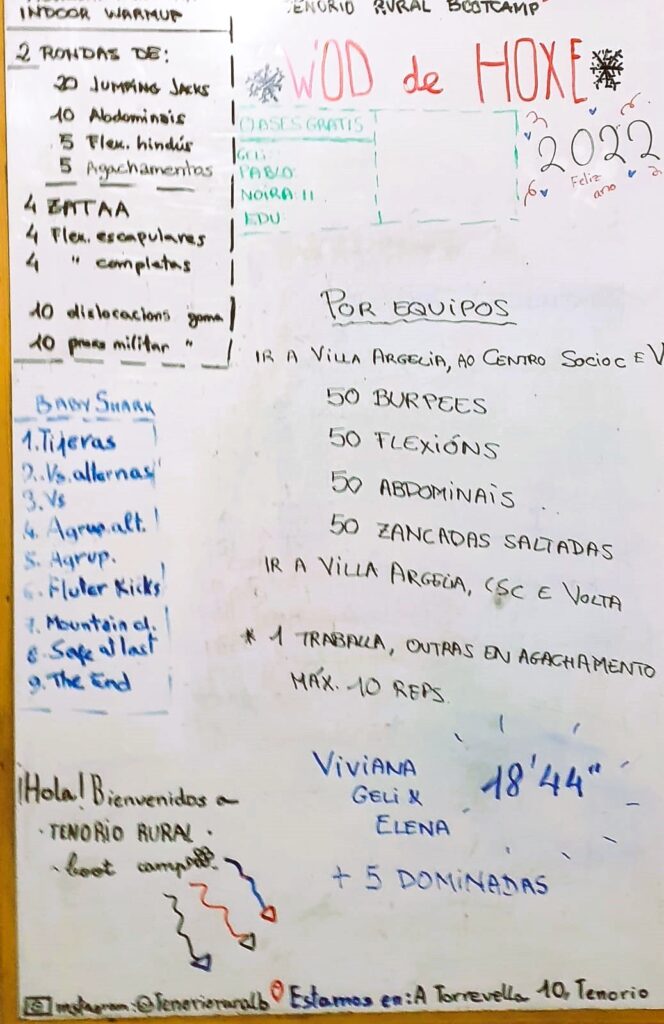 INDOOR WARMUP
2 RONDAS DE:
20 JUMPING JACKS
10 Abdominais
5 Flex. hindús
5 Agachamentos
4 ZATAA
4 Flex. escapulares
4 " completas
10 dislocacions goma
10 press militar "
BABY SHARK
1. Tijeras
2. Vs. alternas
3. Vs
4. Agrup. alt.
5. Agrup.
6. Fluter Kicks
7. Mountain cl.
8. Safe at last
9. The End
¡Hola! Bienvenidos a
· TENORIO RURAL ·
· boot camp
TENORIO RURAL BOOTCAMP
WOD de HOXE
CLASES GRATIS
GELI:
PABLO:
NOIRA: II
EDU
2022
Feliz
ano
POR EQUIPOS
IR A VILLA ARGELIA, AO CENTRO SOCIOC E V
50 BURPEES
50 FLEXIÓNS
50 ABDOMINAIS
50 ZANCADAS SALTADAS
IR A VILLA ARGELIA, CSC E VOLTA
* 1 TRABALLA, OUTRAS EN AGACHAMENTO
MÁX. 10 REPS.
VIVIANA
GELI &
ELENA
18'44"
+ 5 DOMINADAS
instagram: @Tenorioruralb Estamos en: A Torrevella 10, Tenorio